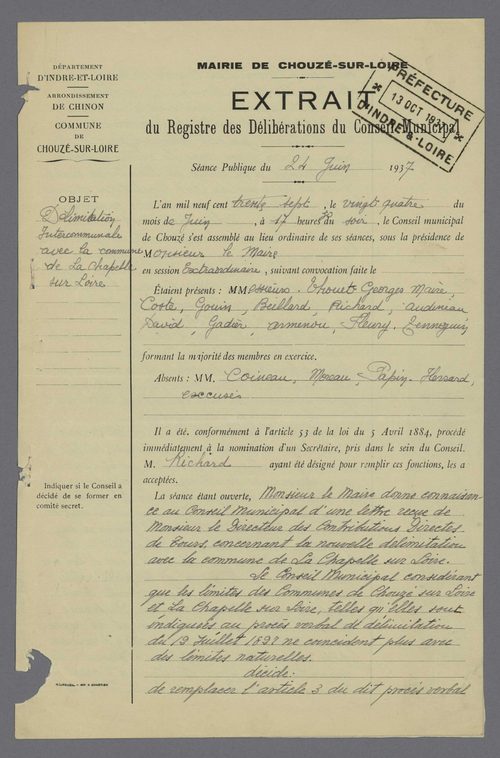 DÉPARTEMENT
D'INDRE-ET-LOIRE
ARRONDISSEMENT
DE CHINON
COMMUNE
DE
CHOUZÉ-SUR-LOIRE
MAIRIE DE CHOUZÉ-SUR-LOIRE
PRÉFECTURE
13 OCT 1937
D'INDRE-&-LOIRE
EXTRAIT
du Registre des Délibérations du Conseil Municipal
Séance Publique du 24 Juin 1937
OBJET
Délimitation
Intercommunale
avec la commune
de La Chapelle
sur Loire
Indiquer si le Conseil a
décidé de se former en
comité secret.
L'an mil neuf cent trente sept, le vingt quatre du
mois de Juin, à 17 heures du soir, le Conseil municipal
de Chouzé s'est assemblé au lieu ordinaire de ses séances, sous la présidence de
Monsieur le Maire
en session Extraordinaire, suivant convocation faite le
Étaient présents : MMessieurs Georges Maire,
Coste, Gouin, Beillard, Richard,
David, Gadier, Fleury,
formant la majorité des membres en exercice.
Absents : MM. Coineau, Moreau, Papin, Hersard,
excusés
Il a été, conformément à l'article 53 de la loi du 5 Avril 1884, procédé
immédiatement à la nomination d'un Secrétaire, pris dans le sein du Conseil.
M. Richard ayant été désigné pour remplir ces fonctions, les a
acceptées.
La séance étant ouverte, Monsieur le Maire donne connaissan-
ce au Conseil Municipal d'une lettre reçue de
Monsieur le Directeur des Contributions Directes
de Tours, concernant la nouvelle délimitation
avec la commune de La Chapelle sur Loire.
Le Conseil Municipal considérant
que les limites des Communes de Chouzé sur Loire
et La Chapelle sur Loire, telles qu'elles sont
indiquées au procès verbal de délimitation
du 13 Juillet ne coincident plus avec
des limites naturelles.
décide:
de remplacer l'article 3 du dit procès verbal